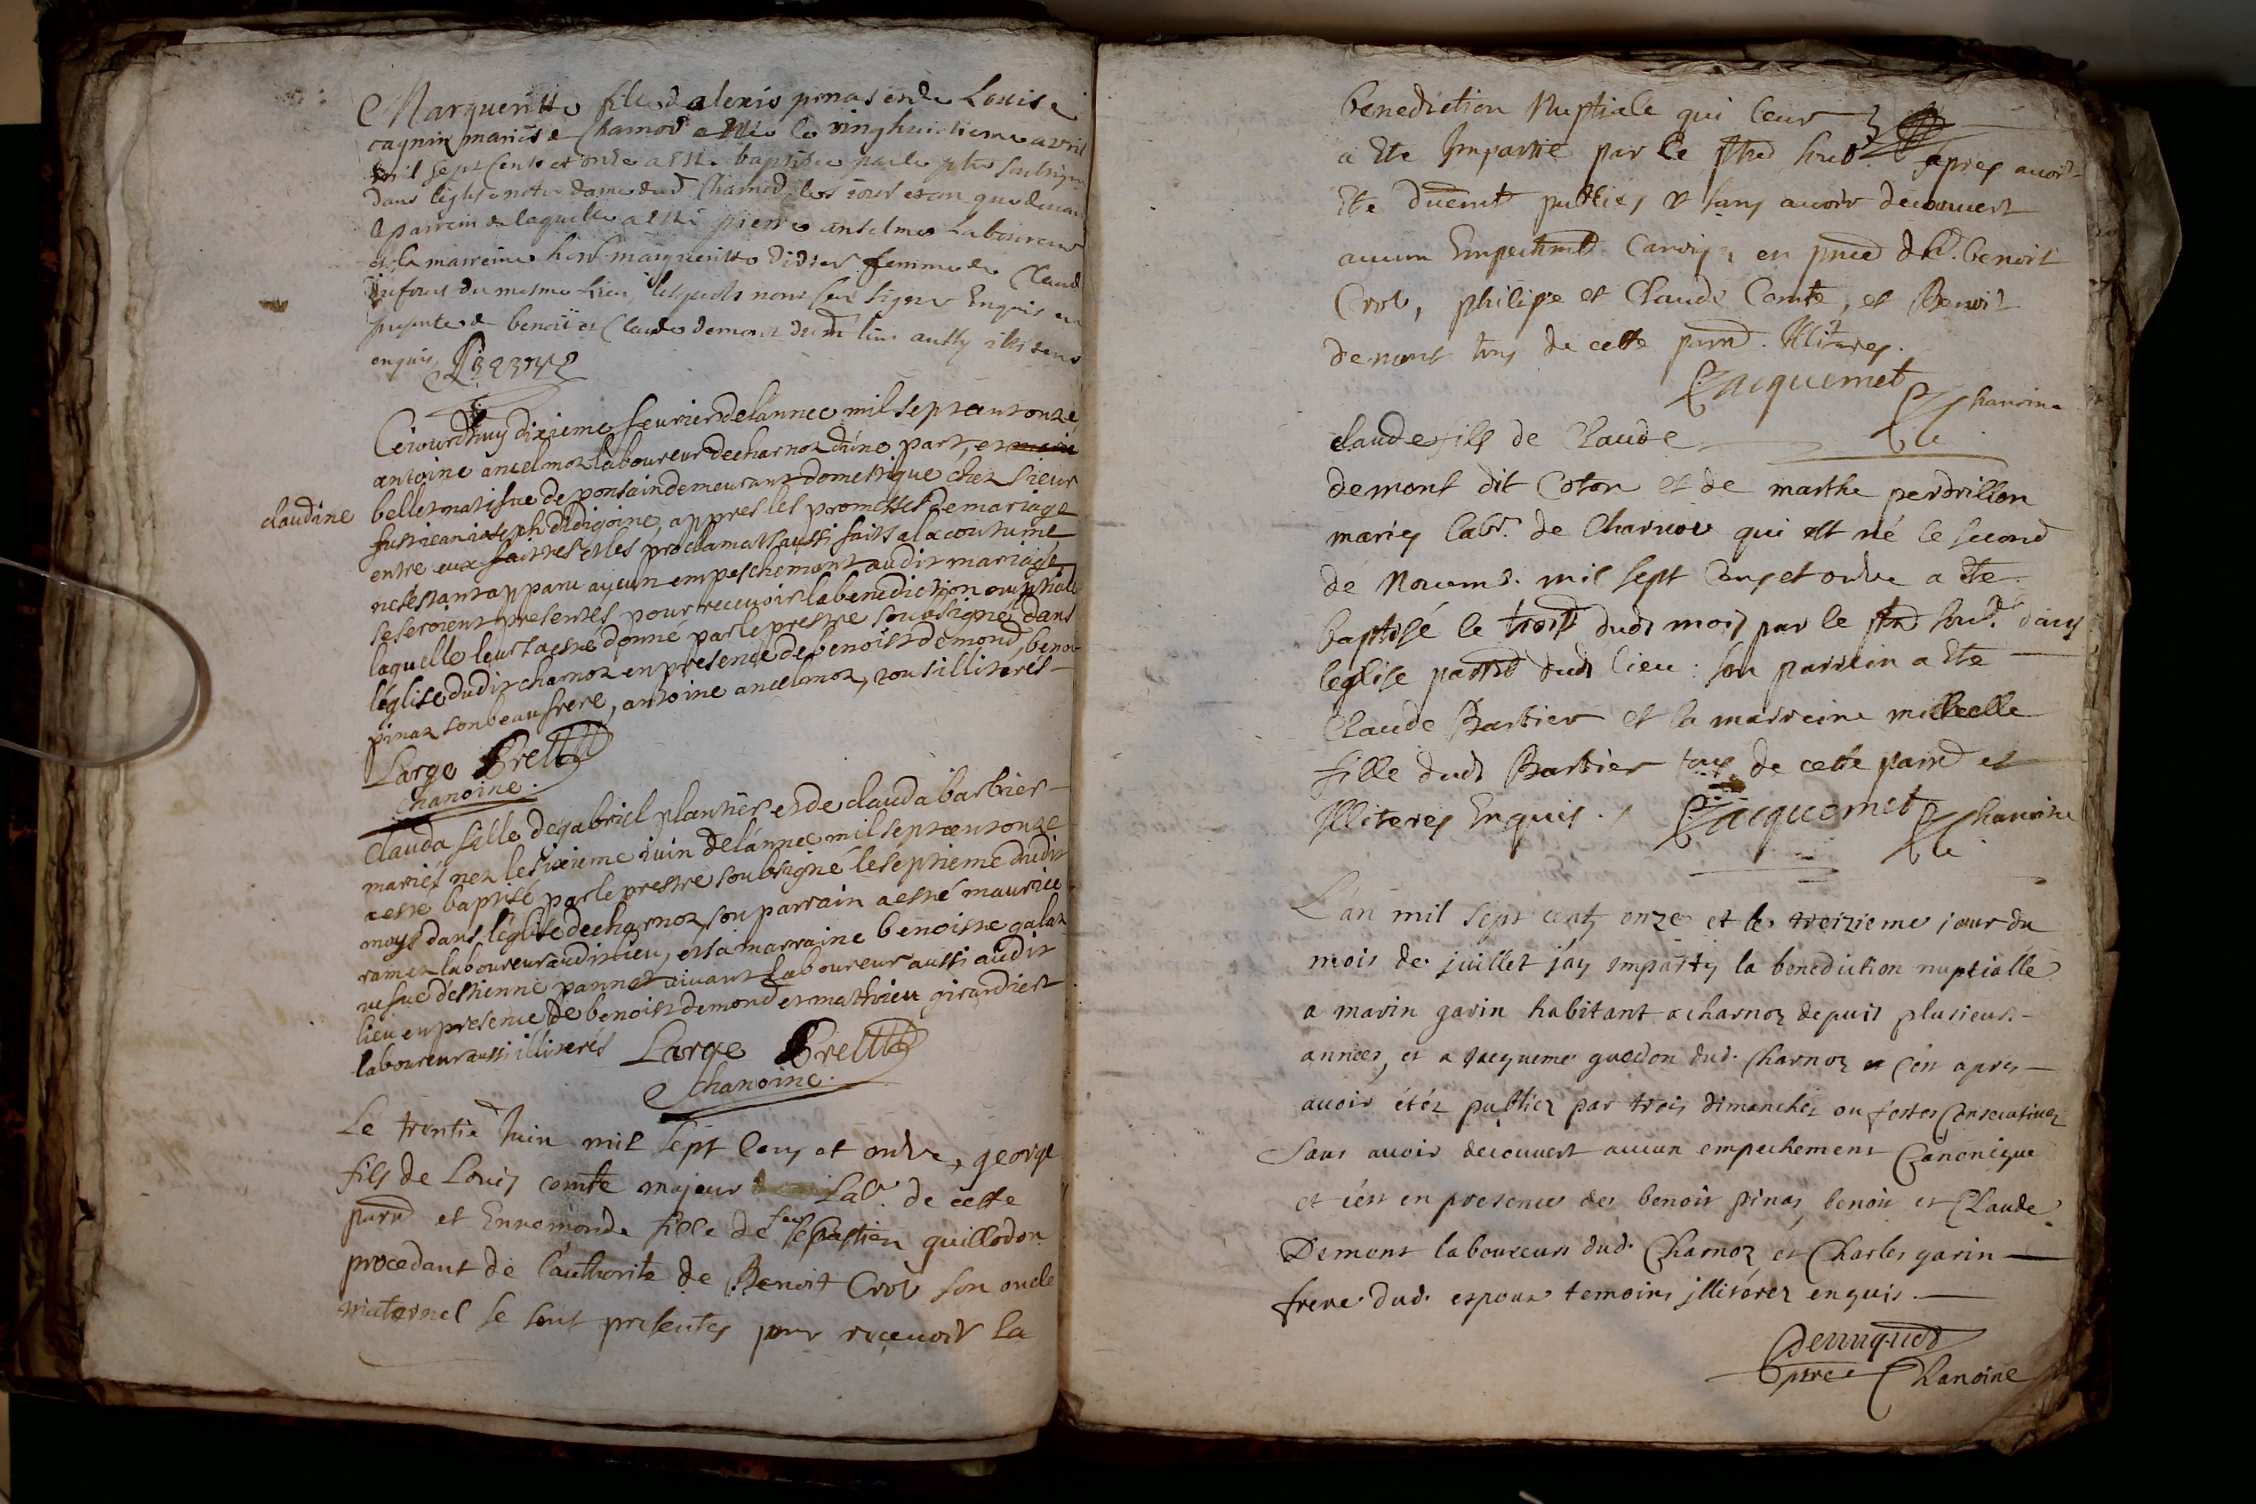 Margueritte fille d alexis pinas et de Louise
cagnin mariés de Charnod a esté le vinghuictieme avril
mil sept cents et onze a esté baptisée par le pbre soubsigné
dans l'eglise notre dame dud Charnod les jour et an que devant
le parrein de laquelle a esté pierre anselme Laboureur
et la marreine hon. margueritte didier femme de Claude
du mesme lieu, lesquels n'ont sceu signer Enquis en
presente de benoit et Claude demont dud lieu aussy illiteres
enquis
Cejourdhuy dixieme fevrier de l'annee mil sept cent onze
antoine ancelmoz laboureur de charnoz d'une part, et
claudine
bellematisue de ponsain demeurant domestique chez sieur
joseph didigoine, appres les promesses de mariage
entre eux faittes et les proclamats aussi faits a la coutume
ne sestant apparu aucun empeschement audit mariage
se seroient presentés pour recevoir la benediction nuptiale
laquelle leur a esté donné par le prestre soubsigné dans
l'église dudit charnoz en presence de benoist demond, benoi
pinaz son beau frere, antoine ancelmoz, tous illiterés
Large Pretre
chanoine.
Clauda fille de gabriel plantier et de clauda barbier
mariés nez le sixieme juin de l'annee mil sept cent onze
a esté baptisé par le prestre soubsigné le septieme dudit
moys dans l'église de charnoz son parrain a esté maurice
ramez laboureur audit lieu, et sa marraine benoiste galaz
vesve d'estienne pannet vivant laboureur aussi audit
lieu en presence de benoist demond et mathieu girardier
laboureur aussi illiterés Large Pretre
chanoine.
Le trentie Juin mil sept Cens et onze, george
fils de Louis comte majeur Labr. de cette
parr. et Ennemonde fille de feu sebastien guillodon
procedant de l'authorité de Benoit Crot son oncle
maternel se sont presentes pour recevoir la
benediction Nuptiale qui leur
a ete Impartie par le ptre sous. apres avoir
ete duemt publies & sans avoir decouvert
aucun Empechmt Canoniq. en pnce de Benoit
Crot, philipe et Claude Comte, et Benoit
demont tous de cette parr. Illiteres.
Jacquemet
Chanoine
claude fils de Claude
demont dit Coton et de marthe perdrillon
maries labr. de Charnoz qui est né le second
de Novemb. mil sept Cens et onze a ete
baptisé le trois dudt mois par le ptre sous. dans
leglise parr. dudt lieu. son parrein a ete
Claude Barbier et la marreine michelle
fille dudt Barbier tous de cette parr. et
Illiteres Enquis. Jacquemet Chanoine
L'an mil sept cents onze et le treizieme jour du
mois de juillet j'ay imparty la benediction nuptialle
a marin garin habitant a charnoz depuis plusieurs
années, et a jacqueme guedon dud. Charnoz et c'est apres
avoir étéz publiez par trois dimanches ou festes Consecutives
Sans avoir decouvert aucun empechement Canonique
et c'est en presence de benoit pinas, benoit et Claude
Demont laboureurs dud. Charnoz et Charles garin
frere dud. espoux temoins jlliterez enquis.
ptre Chanoine